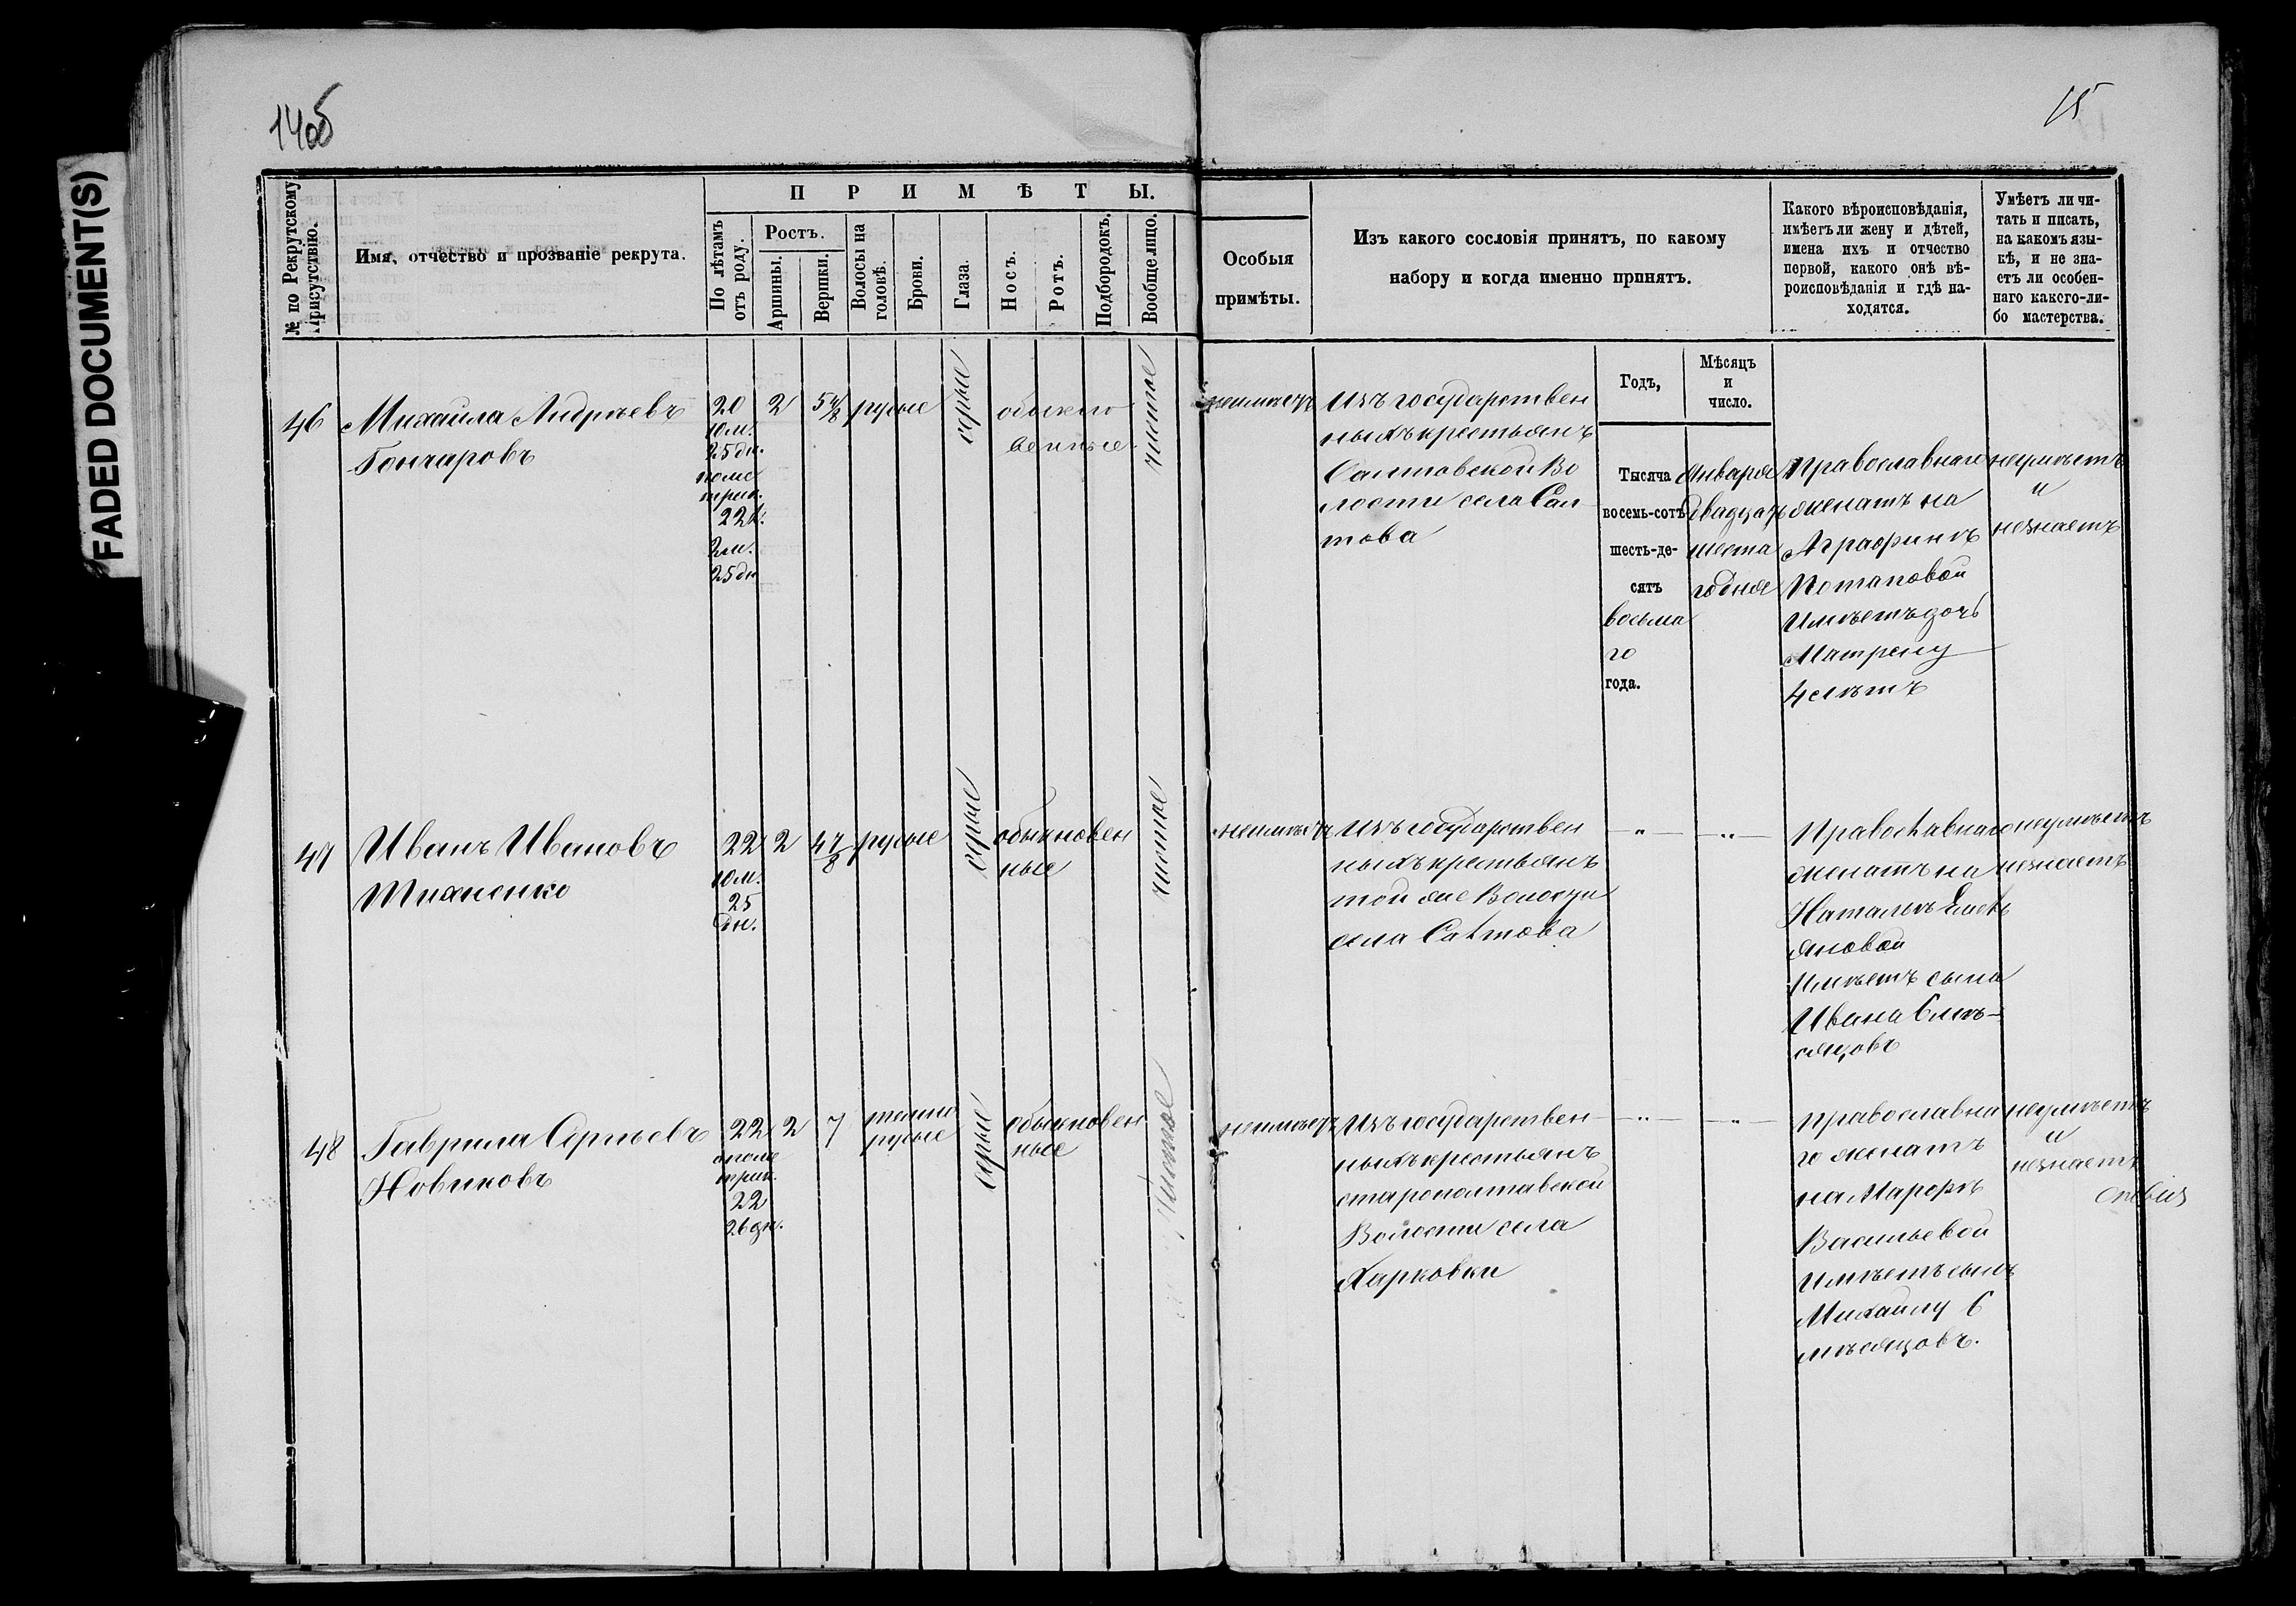 FADED DOCUMENT(S)
14об
15
№ по Рекрутскому Присутствію.
Имя, отчество и прозваніе рекрута.
ПРИМѢТЫ.
По лѣтамъ отъ роду.
Ростъ.
Аршины.
Вершки.
Волосы на головѣ.
Брови.
Глаза.
Носъ.
Ротъ.
Подбородокъ.
Вообще лицо.
Особыя
примѣты.
Изъ какого сословія принятъ, по какому
набору и когда именно принятъ.
Какого вѣроисповѣданія,
имѣетъ ли жену и дѣтей,
имена ихъ и отчество
первой, какого онѣ вѣ-
роисповѣданія и гдѣ на-
ходятся.
Умѣетъ ли чи-
тать и писать,
на какомъ язы-
кѣ, и не зна-
етъ ли особен-
наго какого-ли-
бо мастерства.
Годъ,
Мѣсяцъ
и
число.
46
Михайла Андреевъ
Гончаровъ
20
10 м.
25 дн.
поме
трик.
22 л.
2 м.
25 дн
2
5 4/8
русые
серые
обыкно
венные
чистое
неимеетъ
Изъ государствен
ныхъ крестьянъ
Салтовской Во
лости села Сал
това
Тысяча
восемь-сотъ
шесть-де-
сятъ
восьма
го
года.
Января
двадцать
шеста
го дня
Православнаго
женатъ на
Аграфинѣ
Потаповой
Имѣетъ дочь
Матрену
4 лѣтъ
неумѣетъ
и
незнаетъ
47
Иванъ Ивановъ
Тихненко
22
10 м.
25
дн.
2
4 7/8
русые
серые
обыкновен
ные
чистое
неимѣетъ
Изъ государствен
ныхъ крестьянъ
той же Волости
села Салтова
Православнаго
женатъ на
Натальѣ Емель
яновой
Имѣетъ сына
Ивана 6 мѣ-
сяцовъ
неумѣетъ
незнаетъ
48
Гаврила Сергѣевъ
Новиковъ
22
поме
трик.
22
26 дн.
2
7
темно
русые
серые
обыкновен
ные
Чистое
неимѣетъ
Изъ государствен
ныхъ крестьянъ
старополтавской
Волости села
Харковки
православна
го женатъ
на Марфѣ
Васильевой
имѣетъ сынъ
Михайлу 6
мѣсяцовъ.
неумѣетъ
и
незнаетъ